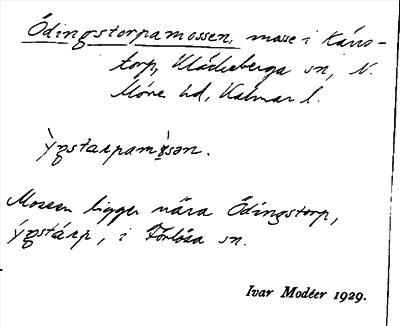 Ödingstorpamossen, mosse i Kåre-
torp, Kläckeberga sn, N.
Möre hd, Kalmar l.
ỳgstarpamỳsən.
Mossen ligger nära Ödingstorp,
ýgstárp, i Förlösa sn.
Ivar Modéer 1929.